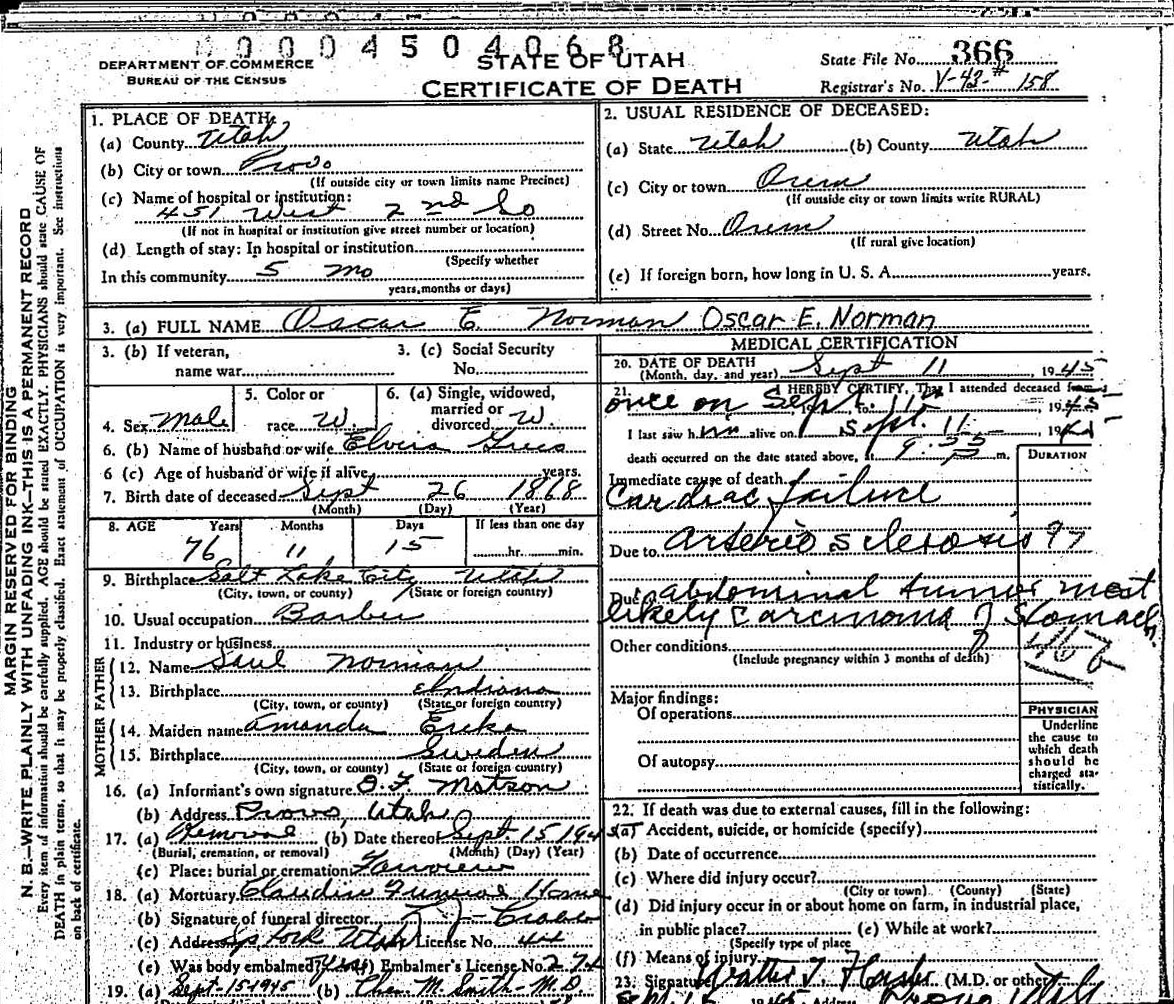 00004504068
DEPARTMENT OF COMMERCE
BUREAU OF THE CENSUS
STATE OF UTAH
CERTIFICATE OF DEATH
State File No. 366
Registrar's No. V-43-# 158
MARGIN RESERVED FOR BINDING
N. B.—WRITE PLAINLY WITH UNFADING INK—THIS IS A PERMANENT RECORD
Every item of information should be carefully supplied. AGE should be stated EXACTLY. PHYSICIANS should state CAUSE OF
DEATH in plain terms, so that it may be properly classified. Exact statement of OCCUPATION is very important. See instructions
on back of certificate.
1. PLACE OF DEATH:
(a) County Utah
(b) City or town Provo
(If outside city or town limits name Precinct)
(c) Name of hospital or institution:
451 West 2nd So
(If not in hospital or institution give street number or location)
(d) Length of stay: In hospital or institution
(Specify whether
In this community 5 mo
years, months or days)
2. USUAL RESIDENCE OF DECEASED:
(a) State Utah (b) County Utah
(c) City or town Orem
(If outside city or town limits write RURAL)
(d) Street No. Orem
(If rural give location)
(e) If foreign born, how long in U. S. A. years.
3. (a) FULL NAME Oscar E. Norman Oscar E. Norman
3. (b) If veteran, name war
3. (c) Social Security No.
4. Sex Male
5. Color or race W.
6. (a) Single, widowed, married or divorced W.
6. (b) Name of husband or wife
6 (c) Age of husband or wife if alive years.
7. Birth date of deceased Sept 26 1868
(Month) (Day) (Year)
8. AGE Years Months Days If less than one day
76 11 15 hr. min.
9. Birthplace Salt Lake City Utah
(City, town, or county) (State or foreign country)
10. Usual occupation Barber
11. Industry or business
FATHER
12. Name Saul Norman
13. Birthplace Indiana
(City, town, or county) (State or foreign country)
MOTHER
14. Maiden name Amanda
15. Birthplace Sweden
(City, town, or county) (State or foreign country)
16. (a) Informant's own signature O. F. Matson
(b) Address Provo, Utah
17. (a) Removal (b) Date thereof Sept. 15 194
(Burial, cremation, or removal) (Month) (Day) (Year)
(c) Place: burial or cremation Fairview
18. (a) Mortuary Claudin Funeral Home
(b) Signature of funeral director
(c) Address Sp Fork Utah License No. 44
(e) Was body embalmed? Yes (f) Embalmer's License No. 274
19. (a) Sept-15-1945 (b) Chas. M. Smith - M.D.
MEDICAL CERTIFICATION
20. DATE OF DEATH
(Month, day, and year) Sept 11, 1945
21. I HEREBY CERTIFY, That I attended deceased from
once on Sept. 11 19 to 1945
I last saw him alive on Sept. 11 194
death occurred on the date stated above, at 9:55 m.
DURATION
Immediate cause of death
Cardiac failure
Due to Arterio sclerosis 97
Due to abdominal tumor most
likely Carcinoma of Stomach.
Other conditions
(Include pregnancy within 3 months of death)
46b
Major findings:
Of operations
Of autopsy
PHYSICIAN
Underline
the cause to
which death
should be
charged sta-
tistically.
22. If death was due to external causes, fill in the following:
(a) Accident, suicide, or homicide (specify)
(b) Date of occurrence
(c) Where did injury occur?
(City or town) (County) (State)
(d) Did injury occur in or about home on farm, in industrial place,
in public place? (e) While at work?
(Specify type of place
(f) Means of injury
23. Signature Walter T. Hasler (M.D. or other)
Sept. 15 1945 Address Provo Utah